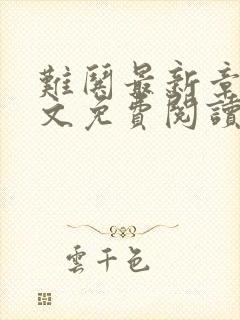 難鬥最新章
文免費閱讀
雲千色